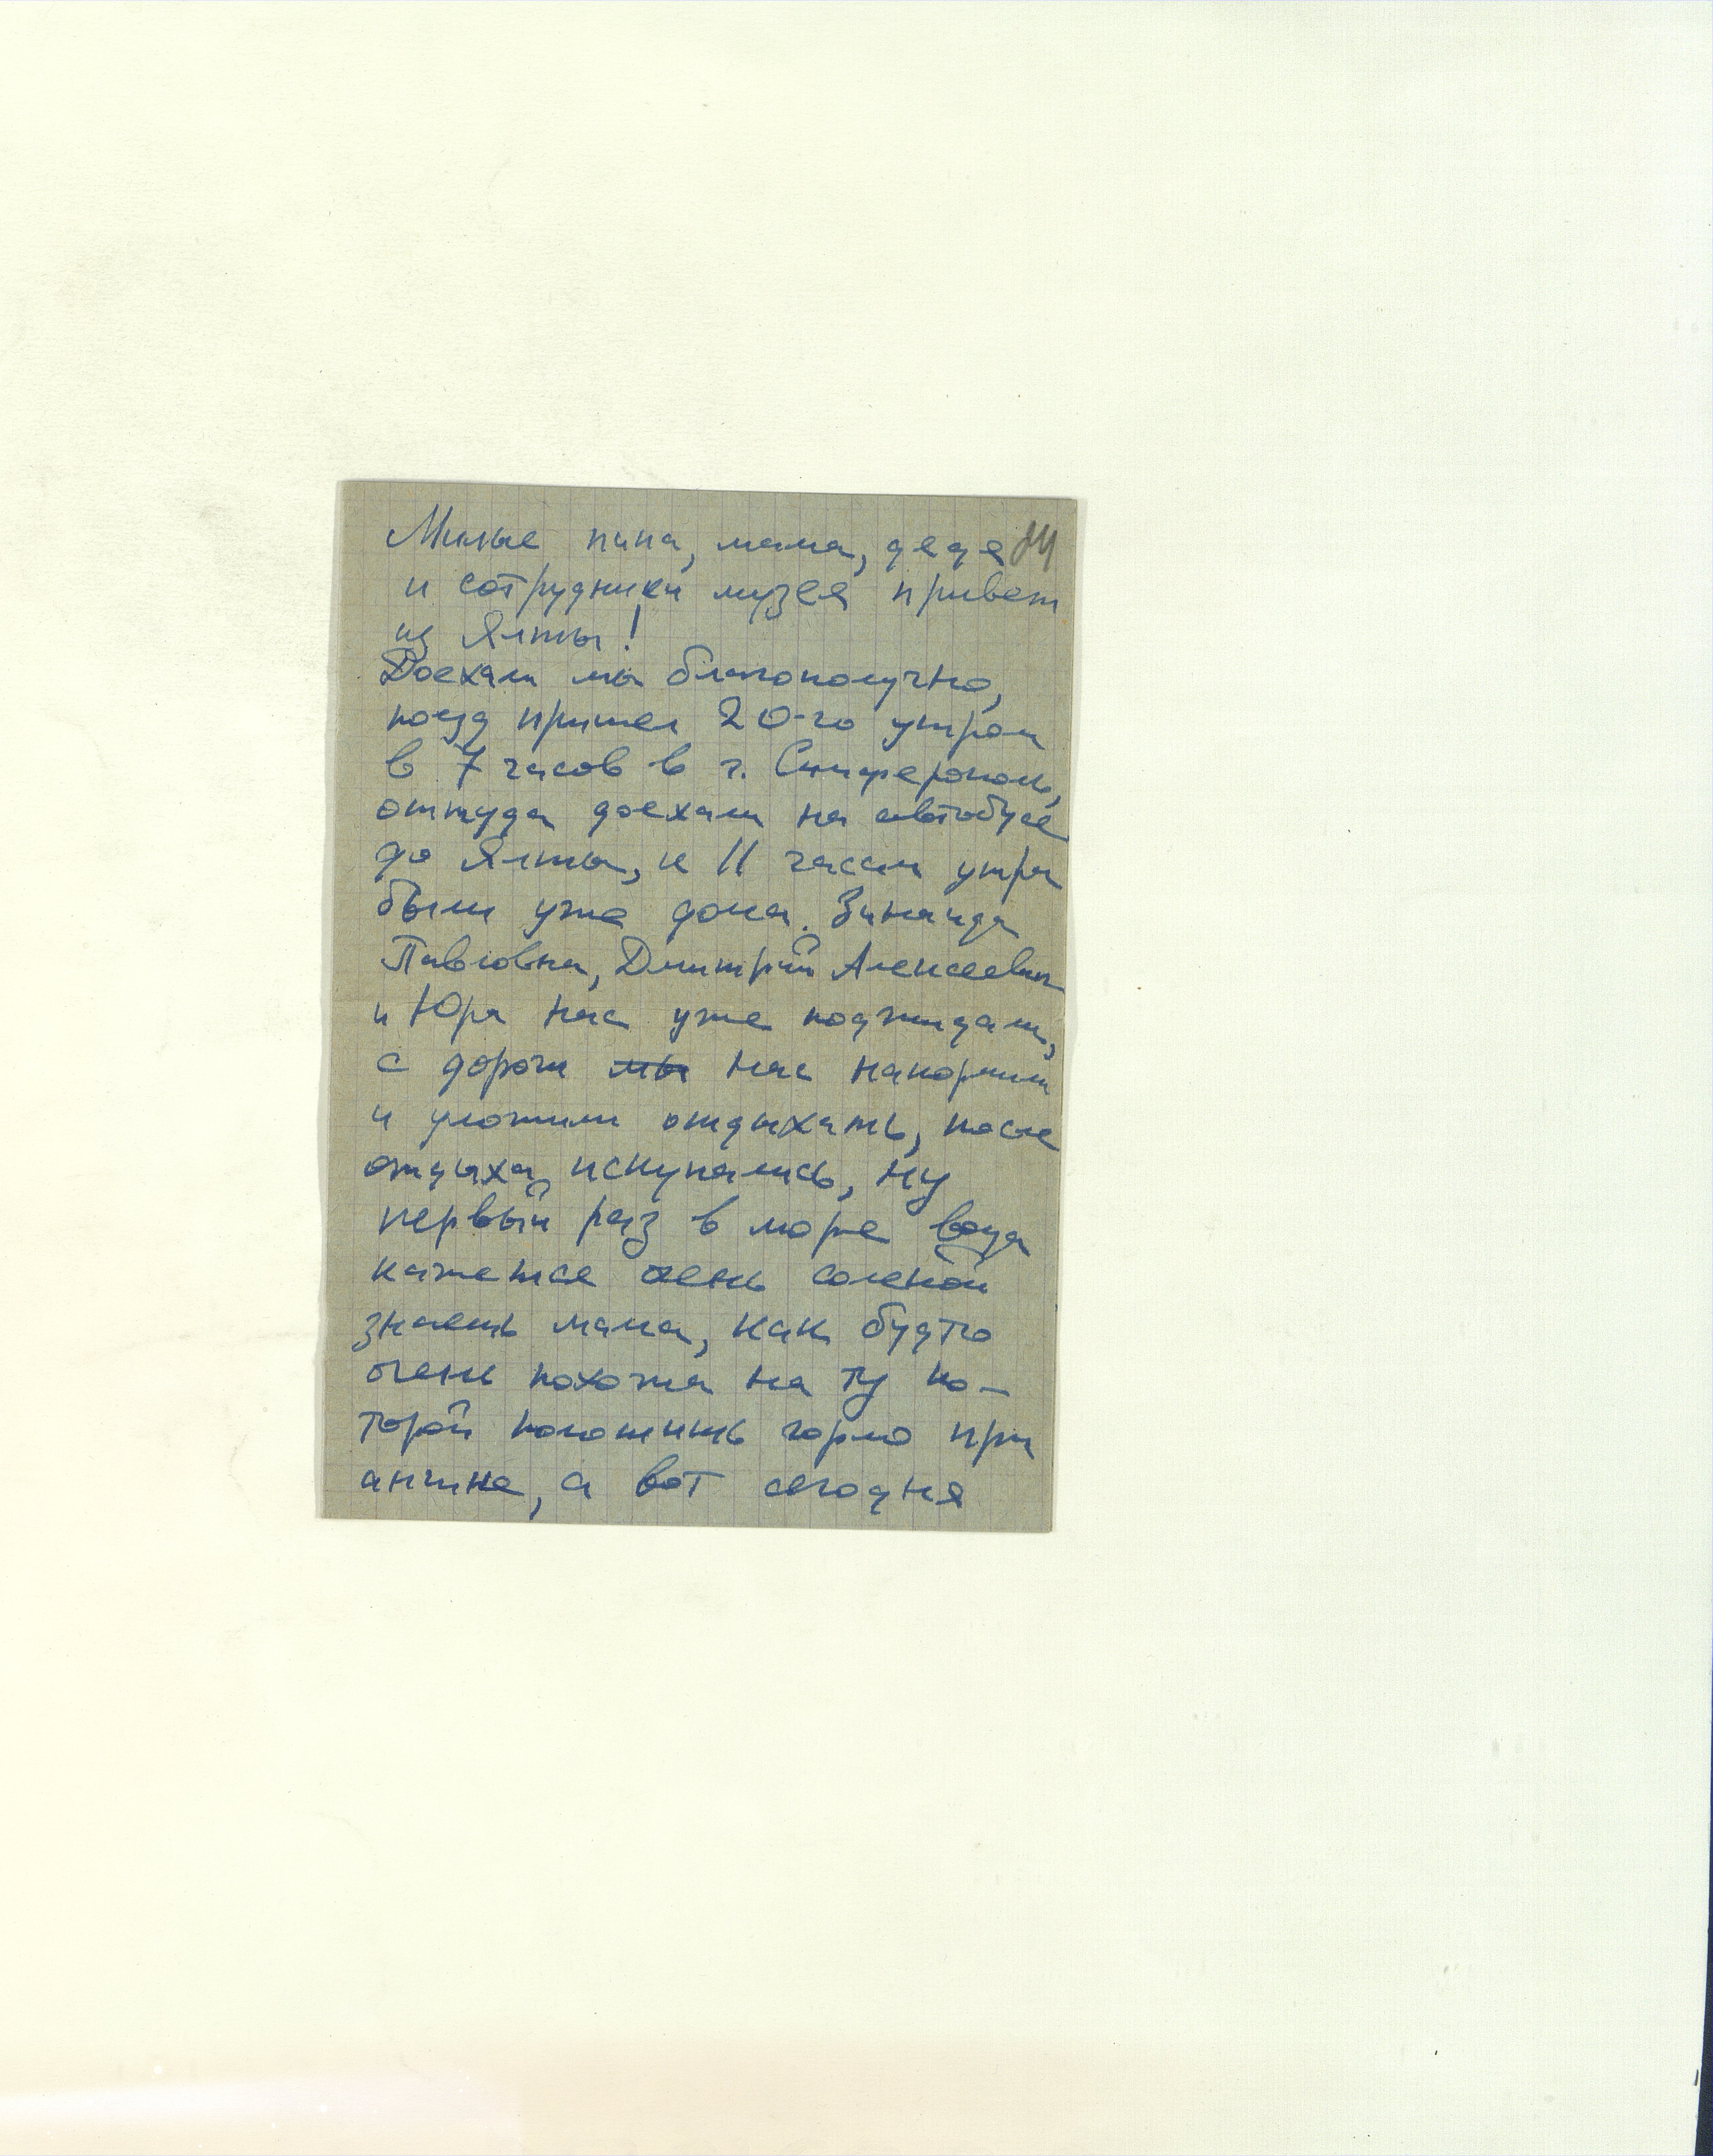 Милые папа, мама, дедя 84
и сотрудники музея привет
из Ялты!
Доехали мы благополучно,
поезд пришел 20-го утром
в 7 часов в г. Симферополь,
оттуда доехали на автобусе
до Ялты, к 11 часам утра
были уже дома. Зинаида
Павловна, Дмитрий Алексеевич
и Юра нас уже поджидали,
с дороги мы нас накормили
и уложили отдыхать, после
отдыха искупались, ну
первый раз в море вода
кажется очень соленой
знаешь мама, как будто
очень похожа на ту ко-
торой полощить горло при
ангине, а вот сегодня